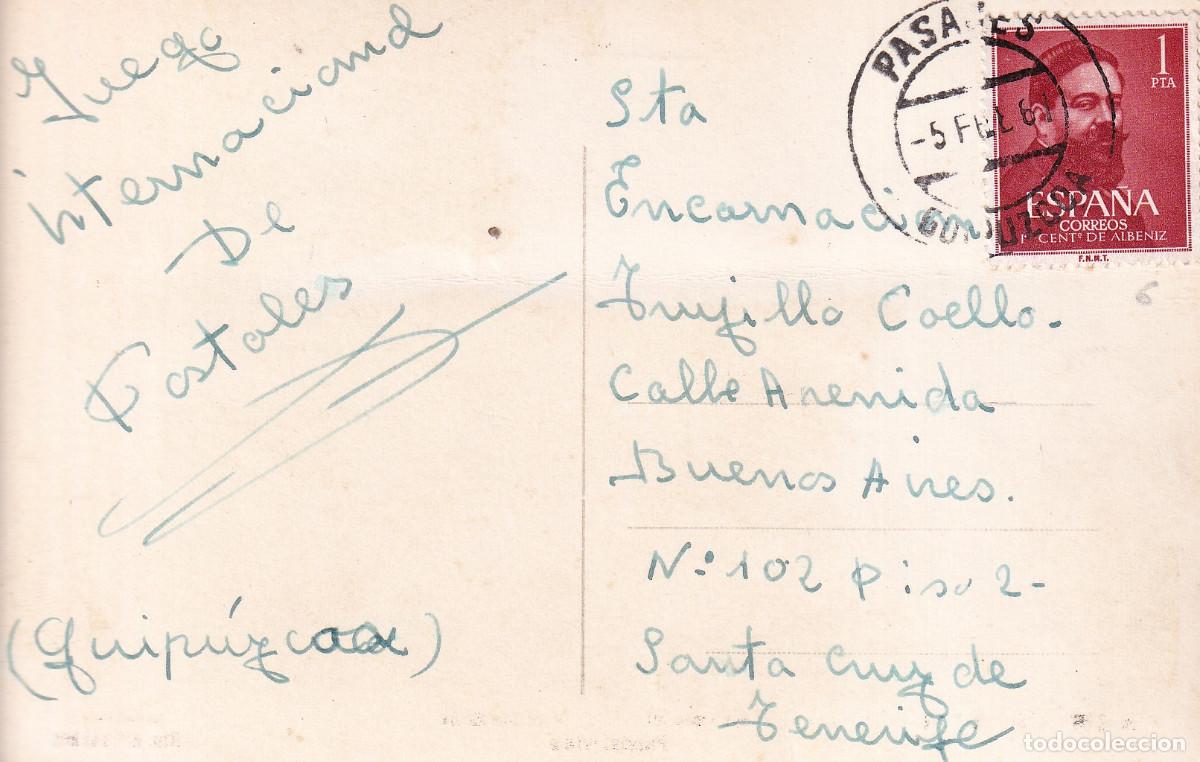 Juego
internacional
De
Postales
(Guipúzcoa)
Sta
Encarnacion
Trujillo Coello.
Calle Avenida
Buenos Aires.
N.º 102 Piso 2-
Santa Cruz de
Tenerife
PASAJES
-5 FEB. 61
GUIPUZCOA
1
PTA
ESPAÑA
CORREOS
1er CENTº DE ALBENIZ
F.N.M.T.
6
todocoleccion